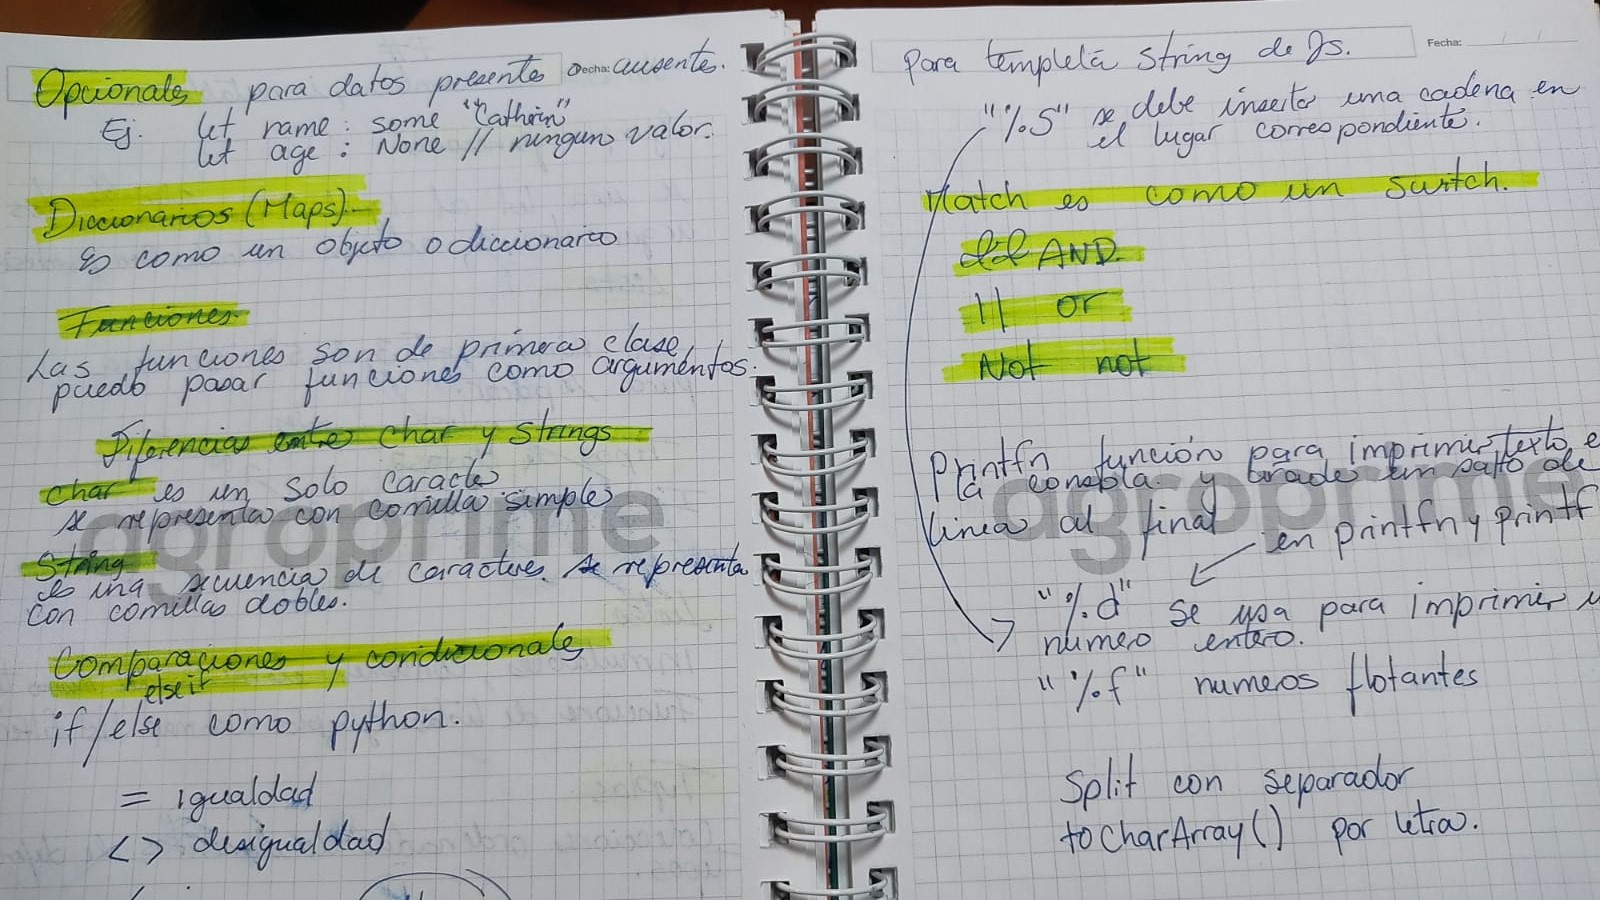 Opcionales, para datos presentes Decha: ausentes.
Ej. let name: some "Cathrin"
let age: None // ningun valor.
Diccionarios (Maps).
Es como un objeto o diccionario
Funciones.
Las funciones son de primera clase,
puedo pasar funciones como argumentos.
Diferencias entre char y strings
char es un solo caracte
se representa con comilla simple
String
es una secuencia de caracteres. se representa
con comillas dobles.
Comparaciones y condicionales
elseif
if/else como python.
= igualdad
<> desigualdad
agroprime
Fecha:
Para templeta string de Js.
"%S" se debe insertar una cadena en
el lugar correspondiente.
Match es como un switch.
&& AND.
|| or
Not not
Printfn función para imprimir texto e
la consola. y añade un salto de
linea al final
en printfn y printf
"%d" se usa para imprimir u
numero entero.
"%f" numeros flotantes
Split con separador
toCharArray() por letra.
agroprime